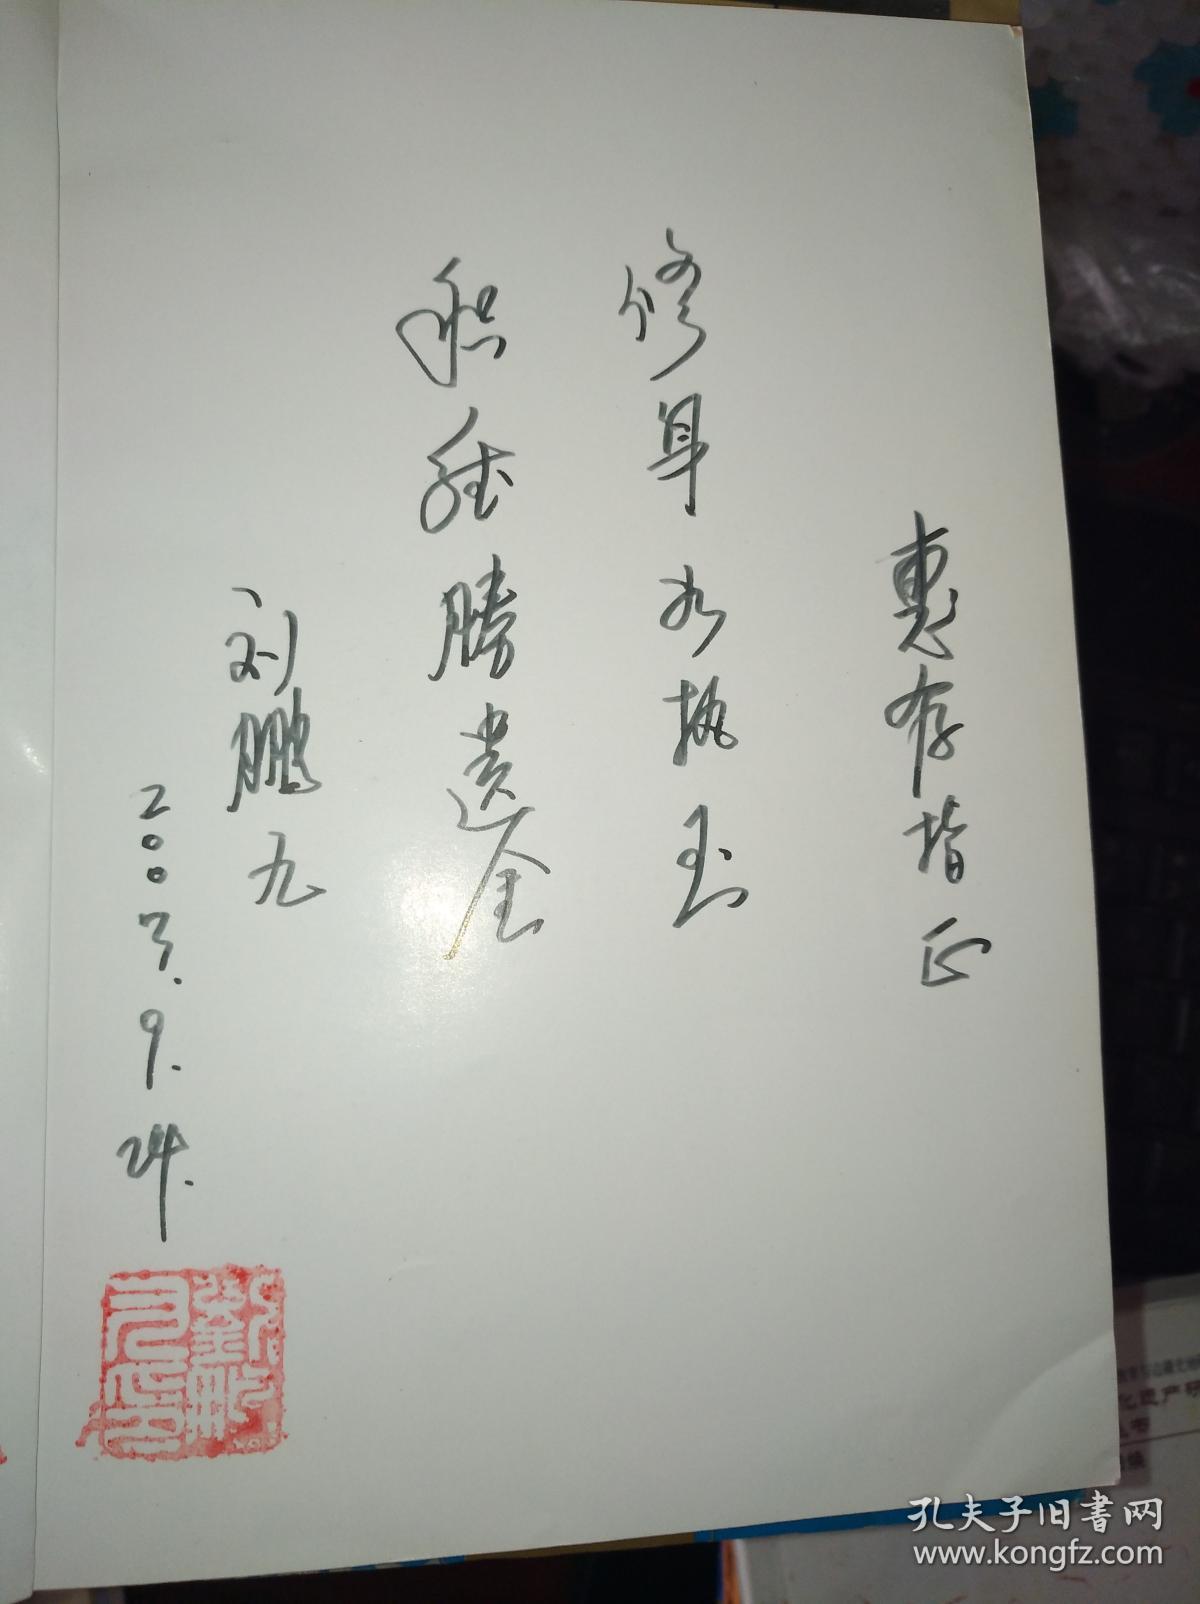 惠存指正
修身如执玉
积德胜遗金
刘鹏九
2007.9.24.
化遗产研
孔夫子旧书网
www.kongfz.com